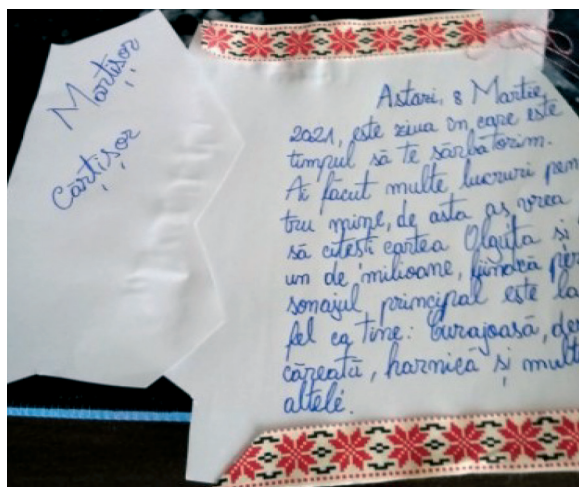 Marțișor
Carțișor
Astazi, 8 Martie,
2021, este ziua în care este
timpul să te sărbatorim.
Ai făcut multe lucruri pen
tru mine, de asta aș vrea
să citesti cartea Olguta si
un de milioane, fiindcă per
sonajul principal este la
fel ca tine: curajoasă, des
căreată, harnică și mult
altele.